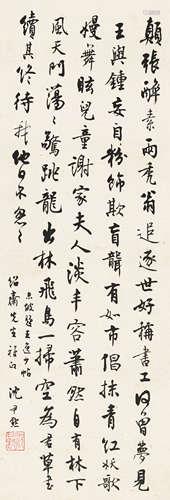 顛張醉素兩禿翁追逐世好稱書工何曾夢見
王與鍾妄自粉飾欺盲聾有如市倡抹青紅妖歌
嫚舞眩兒童謝家夫人淡丰容蕭然自有林下
風天門蕩蕩驚跳龍出林飛鳥一掃空為君草書
續其終待我他日不怱怱
東坡題王逸少帖
紹肅先生雅正 沈尹默